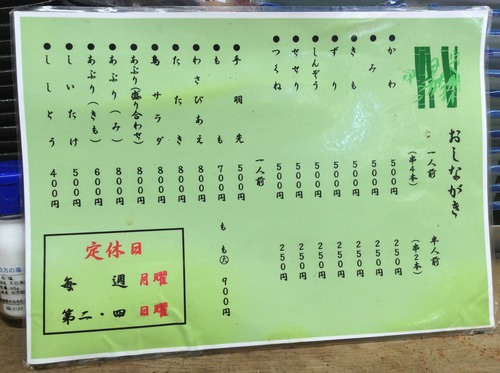 おしながき
一人前(串4本) 半人前(串2本)
●かわ 500円 250円
●み 500円 250円
●きも 500円 250円
●ずり 500円 250円
●しんぞう 500円 250円
●せせり 500円 250円
●つくね 500円 250円
一人前
●手羽先 500円
●もも 700円 もも(大) 900円
●わさびあえ 800円
●たたき 800円
●鳥サラダ 800円
●あぶり(盛り合わせ) 800円
●あぶり(み) 800円
●あぶり(きも) 600円
●しいたけ 500円
●ししとう 400円
定休日
毎週月曜
第二・四日曜